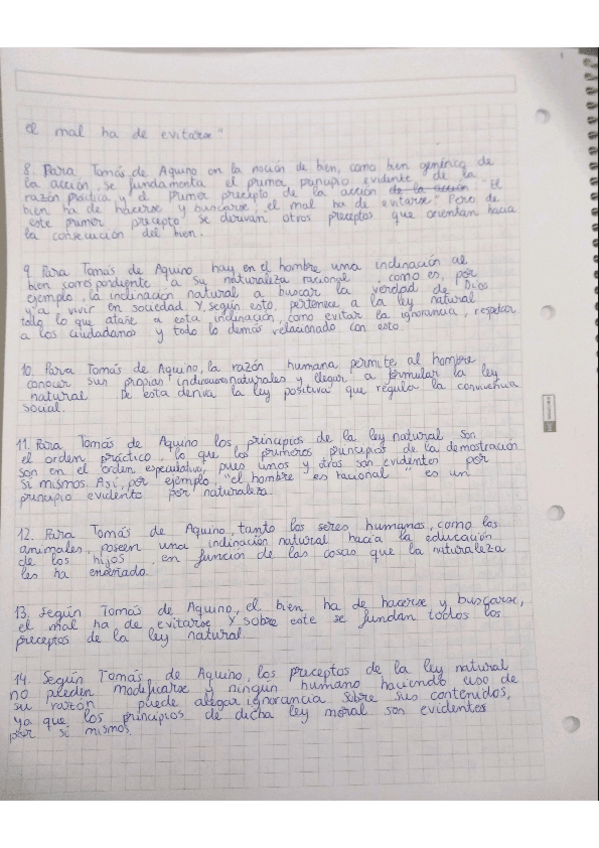 el mal ha de evitarse"
8. Para Tomás de Aquino en la noción de bien, como bien genérico de
la acción, se fundamenta el primer principio evidente de la
razón práctica y el primer precepto de la acción de la acción "El
bien ha de hacerse y buscarse, el mal ha de evitarse". Pero de
este primer precepto se derivan otros preceptos que orientan hacia
la consecución del bien.
9. Para Tomás de Aquino, hay en el hombre una inclinación al
bien correspondiente a su naturaleza racional, como es, por
ejemplo, la inclinación natural a buscar la verdad de Dios
y a vivir en sociedad. Y, según esto, pertenece a la ley natural
todo lo que atañe a esta inclinación, como evitar la ignorancia, respetar
a los ciudadanos y todo lo demás relacionado con esto.
10. Para Tomás de Aquino, la razón humana permite al hombre
conocer sus propias inclinaciones naturales y llegar a formular la ley
natural De esta deriva la ley positiva que regula la convivencia
social.
11. Para Tomás de Aquino los principios de la ley natural son
el orden práctico, lo que los primeros principios de la demostración
son en el orden especulativo, pues unos y otros son evidentes por
sí mismos. Así, por ejemplo, "el hombre es racional" es un
principio evidente por naturaleza.
12. Para Tomás de Aquino, tanto los seres humanos, como los
animales, poseen una inclinación natural hacia la educación
de los hijos, en función de las cosas que la naturaleza
les ha enseñado.
13. Según Tomás de Aquino, el bien ha de hacerse y buscarse,
el mal ha de evitarse y sobre este se fundan todos los
preceptos de la ley natural
14. Según Tomás de Aquino, los preceptos de la ley natural
no pueden modificarse y ningún humano haciendo uso de
su razón puede alegar ignorancia sobre sus contenidos,
ya que, los principios de dicha ley moral son evidentes
por sí mismos.